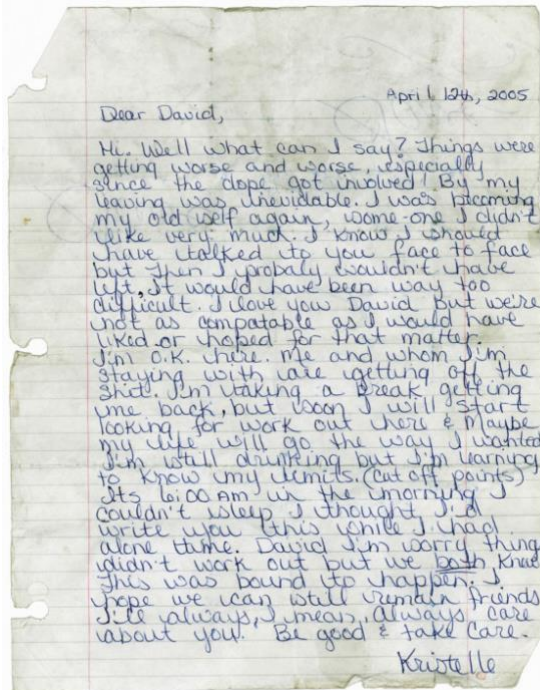 April 12th, 2005
Dear David,
Hi. Well what can I say? Things were
getting worse and worse, especially
since the dope got involved! By my
leaving was inevidable. I was becoming
my old self again, some-one I didn't
like very much. I know I should
have talked to you face to face
but then I probaly wouldn't have
left, It would have been way too
difficult. I love you David but we're
not as compatable as I would have
liked or hoped for that matter.
I'm O.K. here. Me and whom I'm
staying with are getting off the
shit. I'm taking a break getting
me back, but soon I will start
looking for work out here & Maybe
my life will go the way I wanted
I'm still drinking but I'm learning
to know my limits. (cut off points)
Its 6:00 AM in the morning I
couldn't sleep I thought I'd
write you this while I had
alone time. David I'm sorry thing
didn't work out but we both knew
This was bound to happen. I
hope we can still remain friends
I'll always, I mean, always care
about you. Be good & take care.
Kristelle